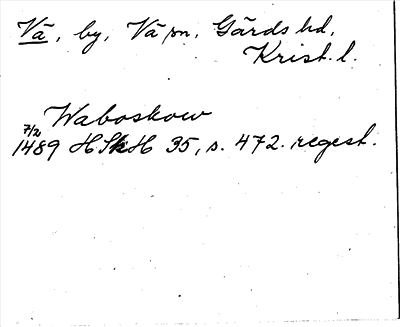 Vä, by, Vä sn, Gärds hd,
Krist. l.
Waboskow
7/2
1489 HSkH 35, s. 472. regest.